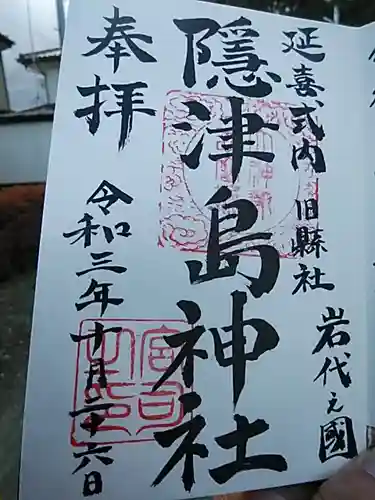 延喜式内 旧縣社
岩代之國
隱津島神社
奉拝
令和三年十月二十六日
宮司之印